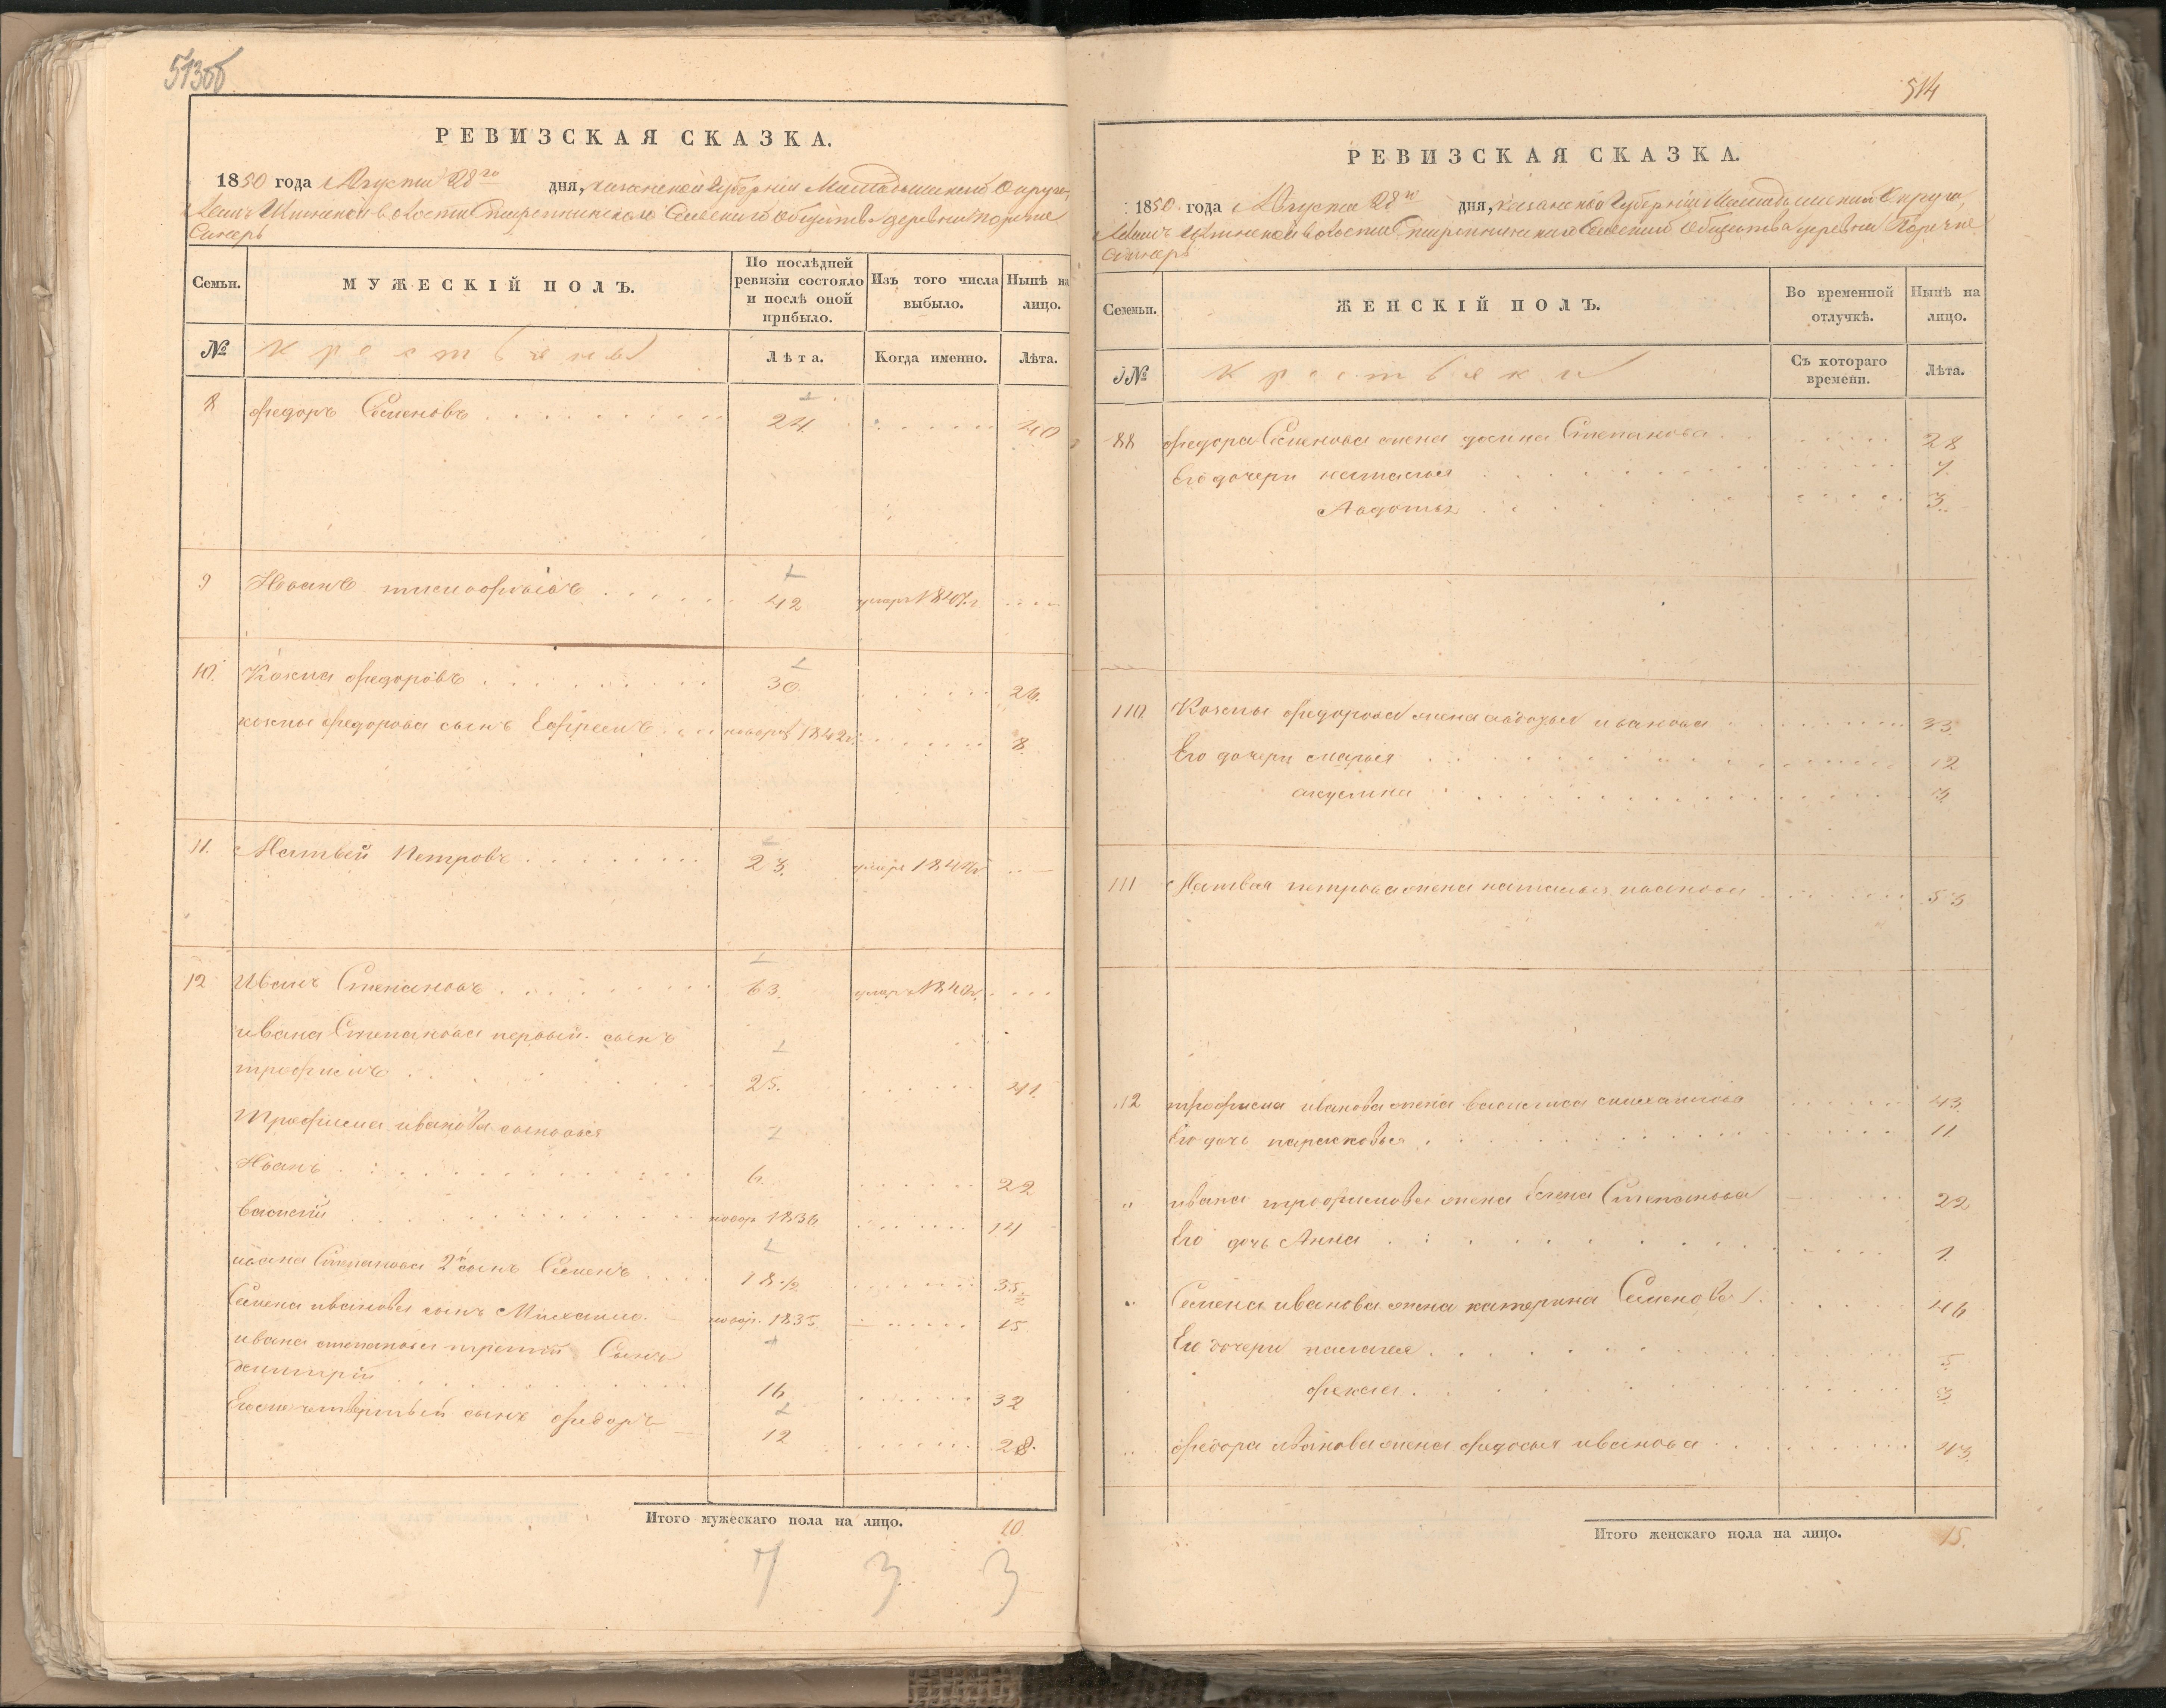 513об
РЕВИЗСКАЯ СКАЗКА.
1850 года Августа 28го дня, казанской Губерніи Мамадышской Округи,
волости Сельскаго общества деревни поречне
Синерь
Семьи. МУЖЕСКІЙ ПОЛЪ. По послѣдней ревизіи состояло и послѣ оной прибыло. Изъ того числа выбыло. Нынѣ на лицо.
№ крестьяне Лѣта. Когда именно. Лѣта.
8 федоръ Семеновъ 24 40
9 Иванъ 42 умеръ 1847г
10. Козма федоровъ 30. 26.
козмы федорова сынъ Ефремъ новорож 1842г. 8.
11. Матвей Петровъ 23. умеръ
12 Иванъ Степановъ 63. умеръ
ивана Степанова первый сынъ
трофимъ 25. 41.
Трофима иванова сыновья
Иванъ 6. 22
василий новор 1836 14
ивана Степанова 2й сынъ Семенъ 18 1/2 35
Семена иванова сынъ Михаило новор. 1835 15
ивана степанова третий Сынъ
дмитрій 16 32
Его же четвертый сынъ федоръ 12 28.
Итого мужескаго пола на лицо. 10.
7 3 3
514
РЕВИЗСКАЯ СКАЗКА.
1850 года Августа 28го дня, казанской Губерніи Мамадышской Округи,
волости Сельскаго Общества деревни Поречне
Синерь
Семьи. ЖЕНСКІЙ ПОЛЪ. Во временной отлучкѣ. Нынѣ на лицо.
№ крестьяки Съ котораго времени. Лѣта.
88 федора Семенова жена Степанова 28
Его дочери наталья 7.
Авдотья 3.
110 Козмы федорова жена авдотья иванова 33.
Его дочери марья 12
акулина 3
111 Матвея петрова жена наталья иванова 53
12 трофима иванова жена василиса михайлова 43
Его дочь парасковья 11
" ивана трофимова жена Елена Степанова 22
Его дочь Анна 1.
" Семена иванова жена катерина Семенова 46
Его дочери палагея 5.
фекла 3
" федора иванова жена федосья иванова 43.
Итого женскаго пола на лицо. 15.